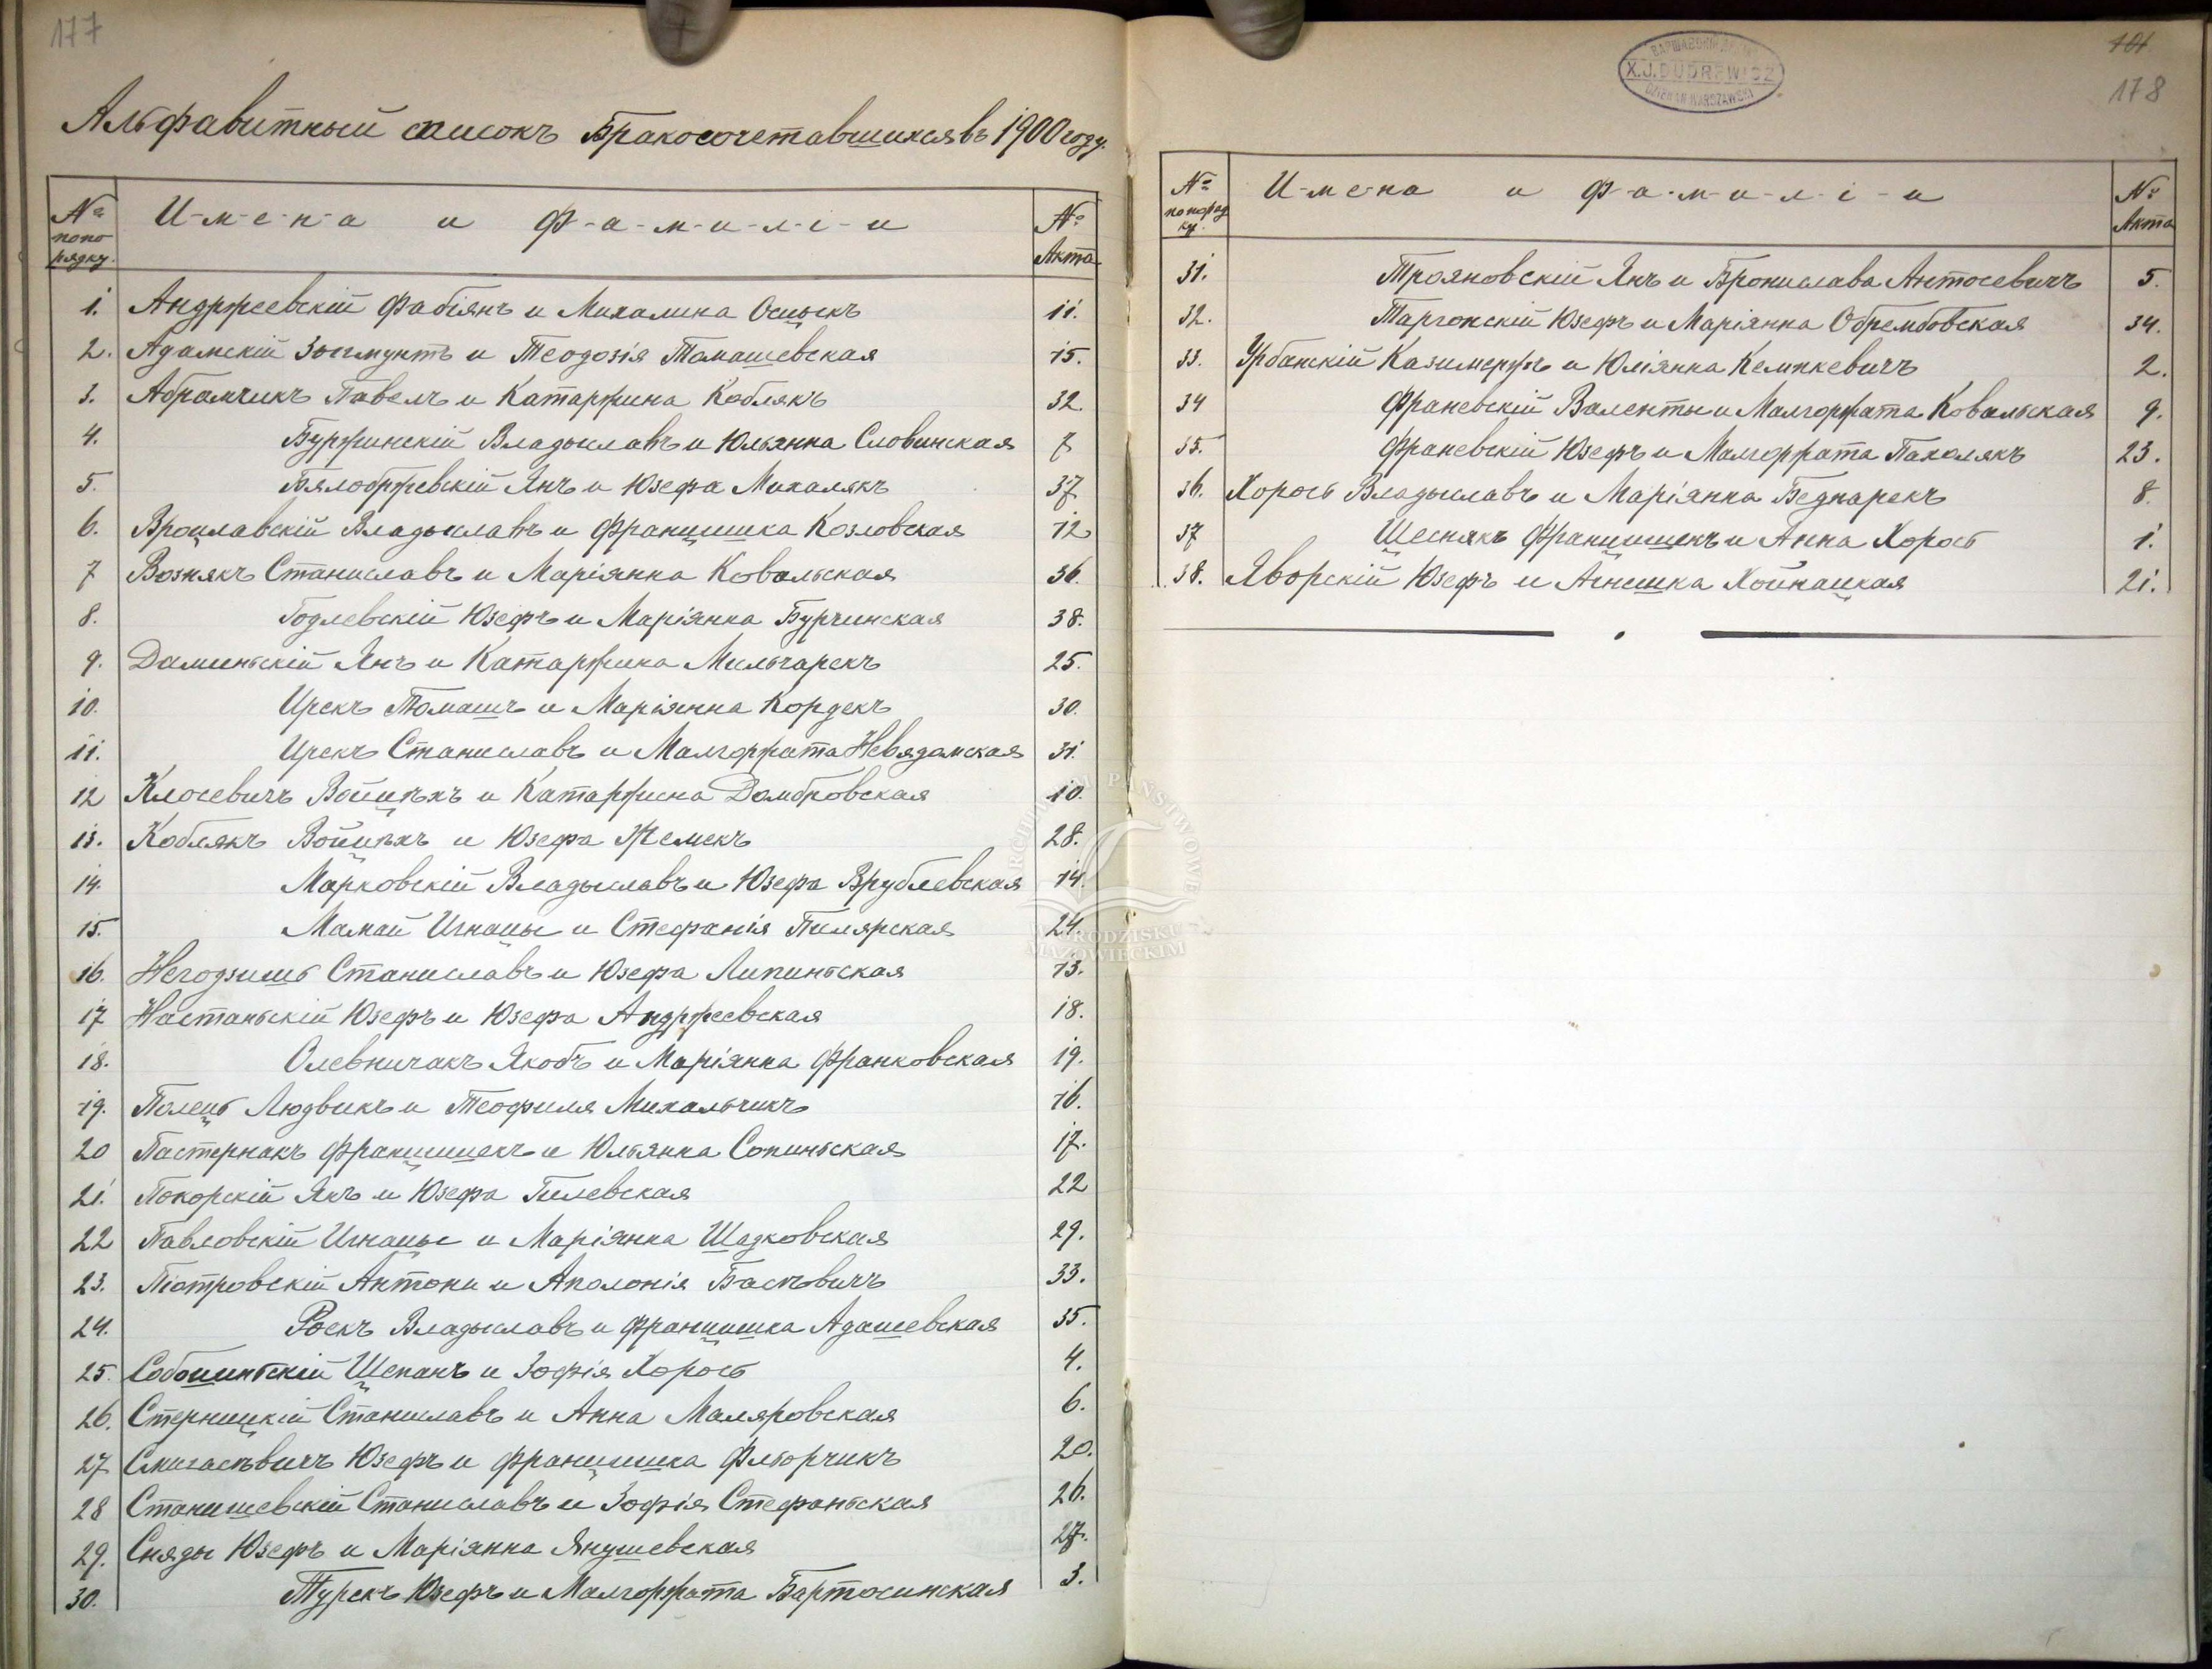 177
Альфавитный списокъ Бракосочетавшихся въ 1900 году.
№ по порядку. И-м-е-н-а и Ф-а-м-и-л-і-и № Акта
1. Андржеевскій Фабіянъ и Михалина Осицкъ 11.
2. Адамскій Зыгмунтъ и Теодозія Томашевская 15.
3. Абрамчикъ Павелъ и Катаржина Коблякъ 32
4. Буржинскій Владыславъ и Юльянна Словинская 7
5. Бялобржевскій Янъ и Юзефа Михалякъ 37.
6. Вроцлавскій Владыславъ и Францишка Козловская 12
7 Вознякъ Станиславъ и Маріянна Ковальская 36.
8. Годлевскій Юзефъ и Маріянна Бурчинская 38.
9. Даминьскій Янъ и Катаржина Мильчарекъ 25.
10. Ирекъ Томашъ и Маріянна Кордекъ 30.
11. Ирекъ Станиславъ и Малгоржата Невядомская 31.
12 Клосевичъ Войцѣхъ и Катаржина Домбровская 10.
13. Коблякъ Войцѣхъ и Юзефа Жемекъ 28.
14. Марковскій Владыславъ и Юзефа Врублевская 14.
15. Мамай Игнацы и Стефанія Пилярская 24.
16. Негодзишъ Станиславъ и Юзефа Липиньская 13.
17 Настаньскій Юзефъ и Юзефа Андржеевская 18.
18. Олевничакъ Якобъ и Маріянна Франковская 19.
19. Полець Людвикъ и Теофиля Михальчикъ 16.
20 Пастернакъ Францишекъ и Юльянна Сопиньская 17.
21. Покорскій Янъ и Юзефа Гилевская 22
22 Павловскій Игнацы и Маріянна Шадковская 29.
23. Піотровскій Антони и Аполонія Басѣвичъ 33.
24. Роекъ Владыславъ и Францишка Адашевская 35.
25. Собоциньскій Щепанъ и Зофія Хорось 4.
26. Стерницкій Станиславъ и Анна Маляровская 6.
27 Смигасѣвичъ Юзефъ и Францишка Фльорчикъ 20.
28 Станишевскій Станиславъ и Зофія Стефаньская 26.
29. Сняды Юзефъ и Маріянна Янушевская 27.
30. Турекъ Юзефъ и Малгоржата Бартосинская 3.
X.J. DUDREWICZ
DZIEKAN WARSZAWSKI
101
178
№ по порядку. И-м-е-на и Ф-а-м-и-л-і-и № Акта
31. Трояновскій Янъ и Бронислава Антосевичъ 5.
32. Таргонскій Юзефъ и Маріянна Обрембовская 34.
33. Урбанскій Казимержъ и Юліянна Кемпкевичъ 2.
34 Франевскій Валенты и Малгоржата Ковальская 9.
35. Франевскій Юзефъ и Малгоржата Пахолякъ 23.
36. Хорось Владыславъ и Маріянна Беднарекъ 8.
37 Щеснякъ Францишекъ и Анна Хорось 1.
38. Яворскій Юзефъ и Агнишка Хойнацкая 21.
ARCHIWUM PAŃSTWOWE
W GRODZISKU MAZOWIECKIM